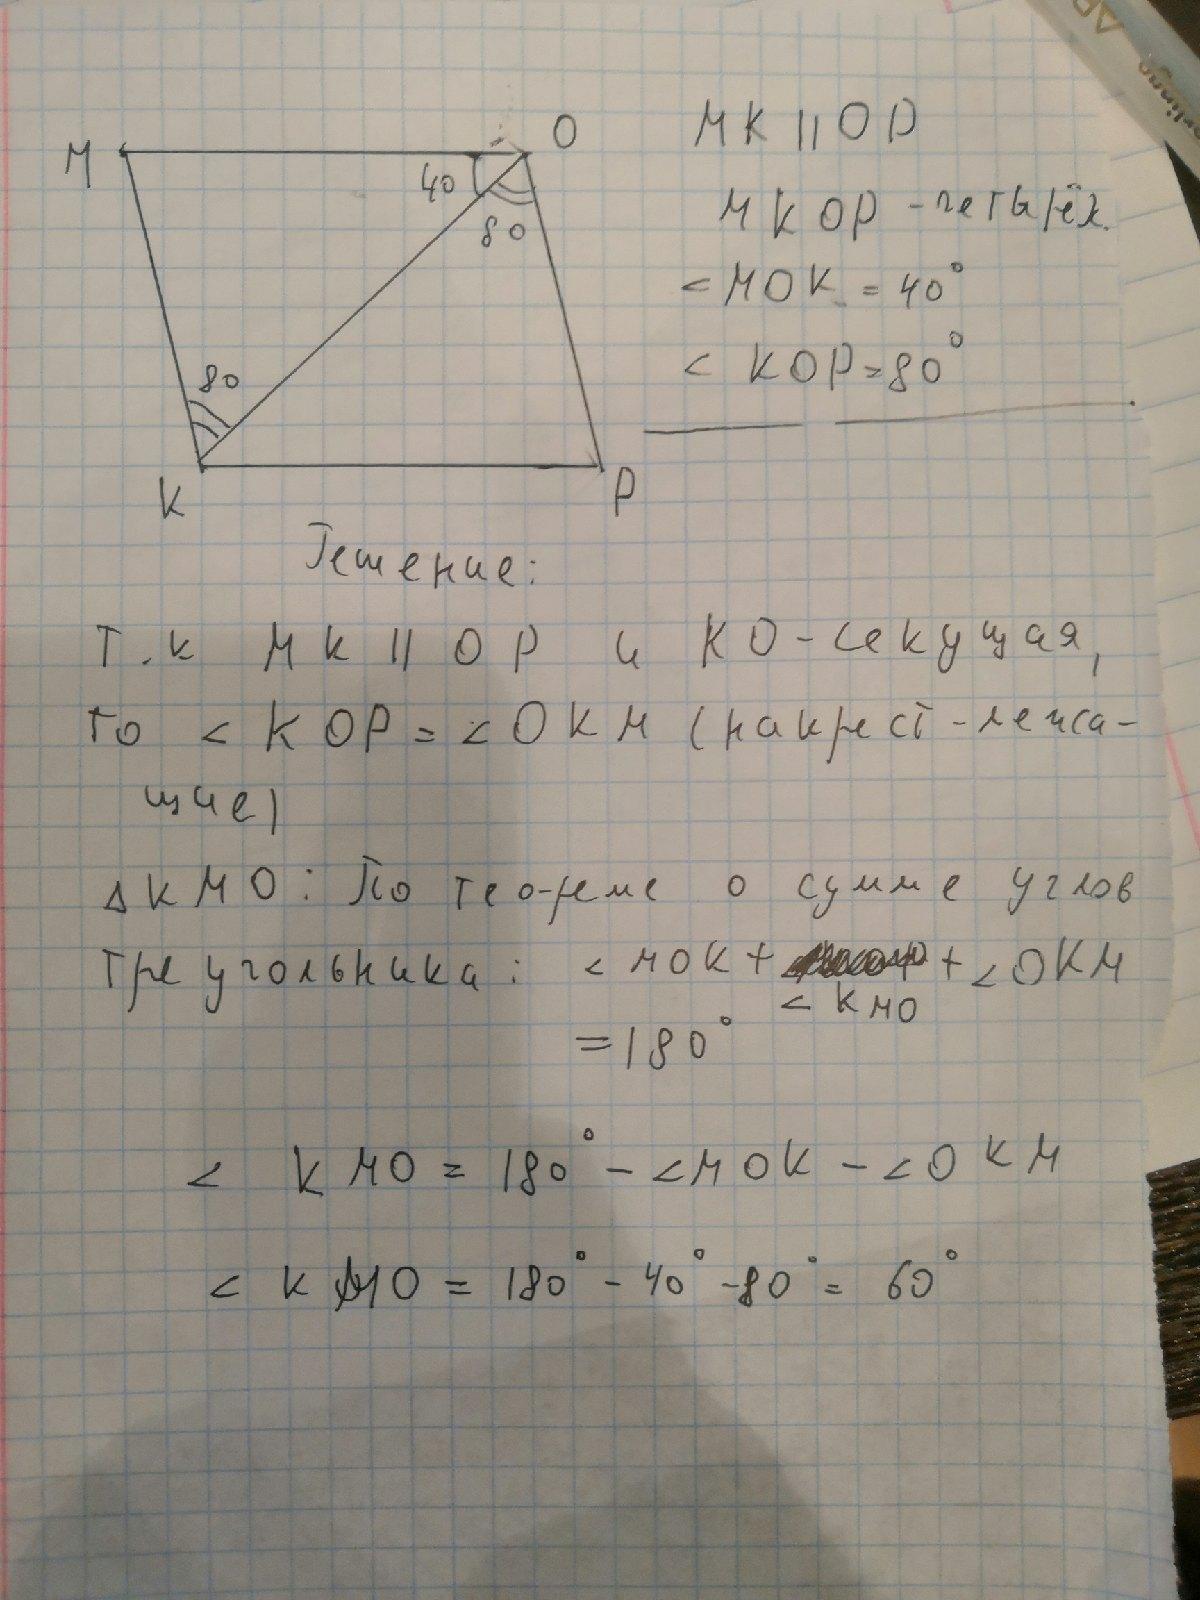 M
O
40
80
80
K
P
MK || OP
MKOP - четырёх.
< MOK = 40°
< KOP = 80°
Решение:
Т.к MK || OP и KO - секущая,
то < KOP = < OKM (накрест - лежа-
щие)
Δ KMO : По теореме о сумме углов
треугольника : < MOK + + < OKM
< KMO
= 180°
< KMO = 180° - < MOK - < OKM
< KMO = 180° - 40° - 80° = 60°